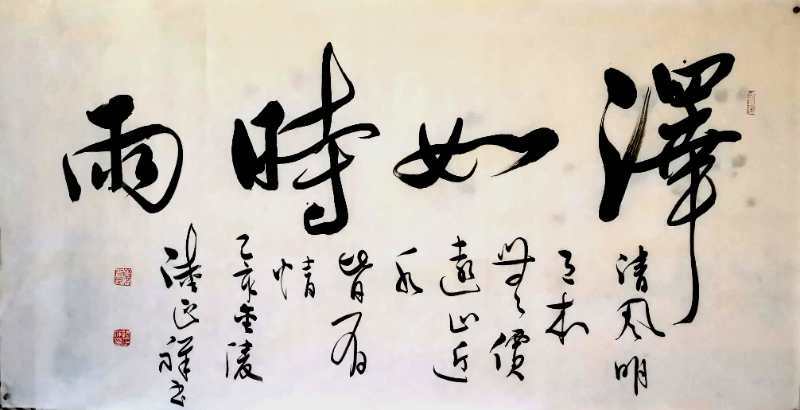 澤如時雨
清風明
月本
無價
遠山近
水
皆有
情
己亥金陵
正祥书